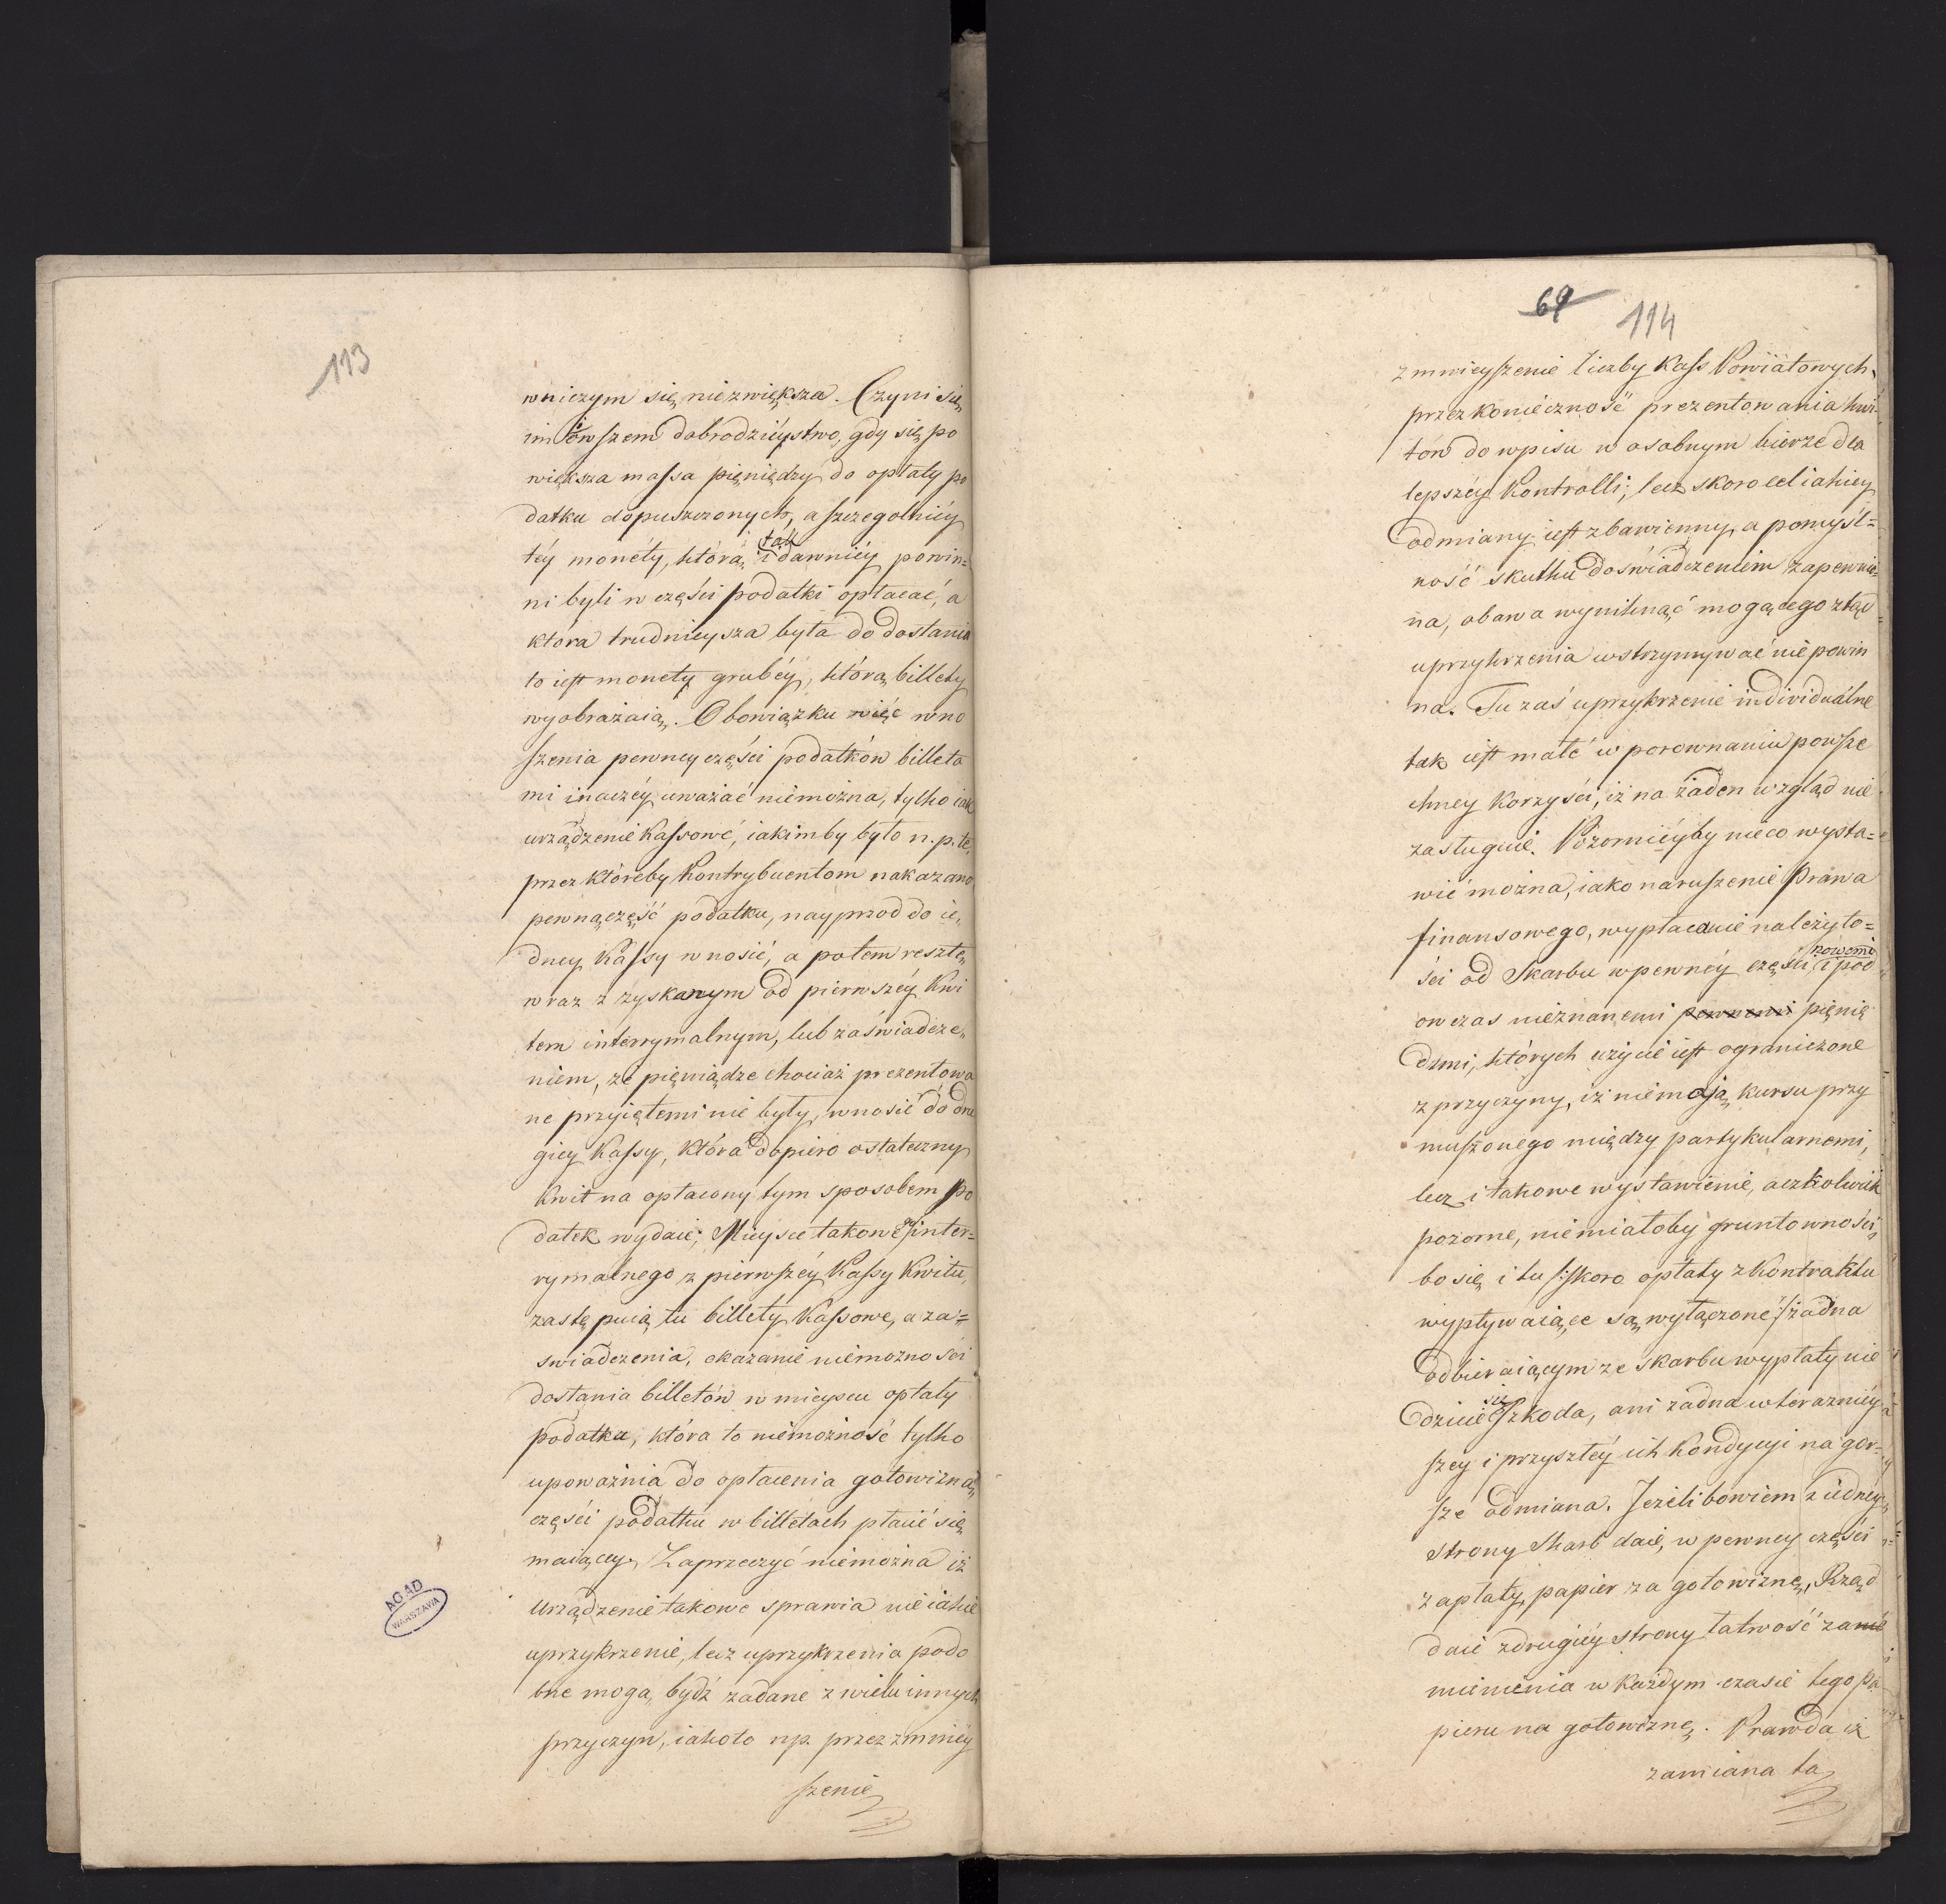 113
wniczym się niezwiększa. Czyni się
im i owszem dobrodzieystwo, gdy się po
większa massa pięniędzy do opłaty po
datku dopuszczonych, a szczegolniey
téy monéty, którą tak i dawniéy powin=
ni byli w części podatki opłacać, a
ktora trudnieysza była do dostania
to iest monety grubéy, którą billety
wyobrażaią. Obowiązku więc wno
szenia pewney części podatków billeta
mi inaczéy uważać niemożna, tylko iak
urządzenie Kassowe, iakimby było n. p. te,
przez któreby Kontrybuentom nakazano
pewną część podatku, nayprzod do ie,
dney Kassy wnosić, a potem resztę
wraz z zyskanym od pierwszéy Kwi
tem interrymalnym, lub zaświadcze,
niem, że pięniądze chociaż prezentowa
ne przyiętemi nie były, wnosić do dru
giey Kassy, która dopiero ostateczny
Kwit na opłacony tym sposobem po
datek wydaie; Mieysce takowego inter=
rymalnego z pierwszéy Kassy Kwitu,
zastępuią tu billety Kassowe, a za=
swiadczenia, okazanie niemożności
dostania billetów w mieyscu opłaty
podatku, która to niemożność tylko
upoważnia do opłacenia gotowizną
części podatku w billetach płacić się
maiącey. Zaprzeczyć niemożna iż
Urządzenie takowe sprawia nieiakie
uprzykrzenie, lecz uprzykrzenia podo
bne mogą bydź zadane z wielu innych
przyczyn, iakoto np. przez zmniéy
szenie
AGAD
WARSZAWA
69
114
zmnieyszenie liczby Kass Powiatowych,
przez konieczność prezentowania kwi-
tów do wpisu w osobnym bierze dla
lepszéy Kontrolli; lecz skoro cel iakiey
odmiany iest zbawienny, a pomyśl=
ność skutku doświadczeniem zapewnio=
na, obawa wyniknąć mogącego ztąd
uprzykrzenia wstrzymywać nie powin
na. Tu zaś uprzykrzenie individualne
tak iest małe w porownaniu powsze
chney Korzyści, iż na żaden wzgląd nie
zasługuie. Pozorniéyby nieco wysta=
wić można, iako naruszenie Prawa
finansowego, wypłacanie należyto=
ści od Skarbu w pewnéy części nowemi i pod
owczas nieznanemi pewnemi pięnię
dzmi, których użycie iest ograniczone
z przyczyny, iż niemają kursu przy
muszonego między partykularnemi,
lecz i takowe wystawienie, aczkolwiek
pozorne, niemiałoby gruntowności,
bo się i tu /: skoro opłaty z Kontraktu
wypływaiące są wyłączone :/ żadna
odbieraiącym ze skarbu wypłaty nie
dzieie się szkoda, ani żadna w terazniéy
szey i przyszłéy ich Kondycyi na gor=
sze odmiana. Jeżeli bowiem z iedney
strony Skarb daie, w pewney części
zapłaty, papier za gotowiznę, Rząd
daie z drugiéy strony łatwość zanie
mienienia w każdym czasie tego pa
pieru na gotowiznę. Prawda iż
zamiana ta